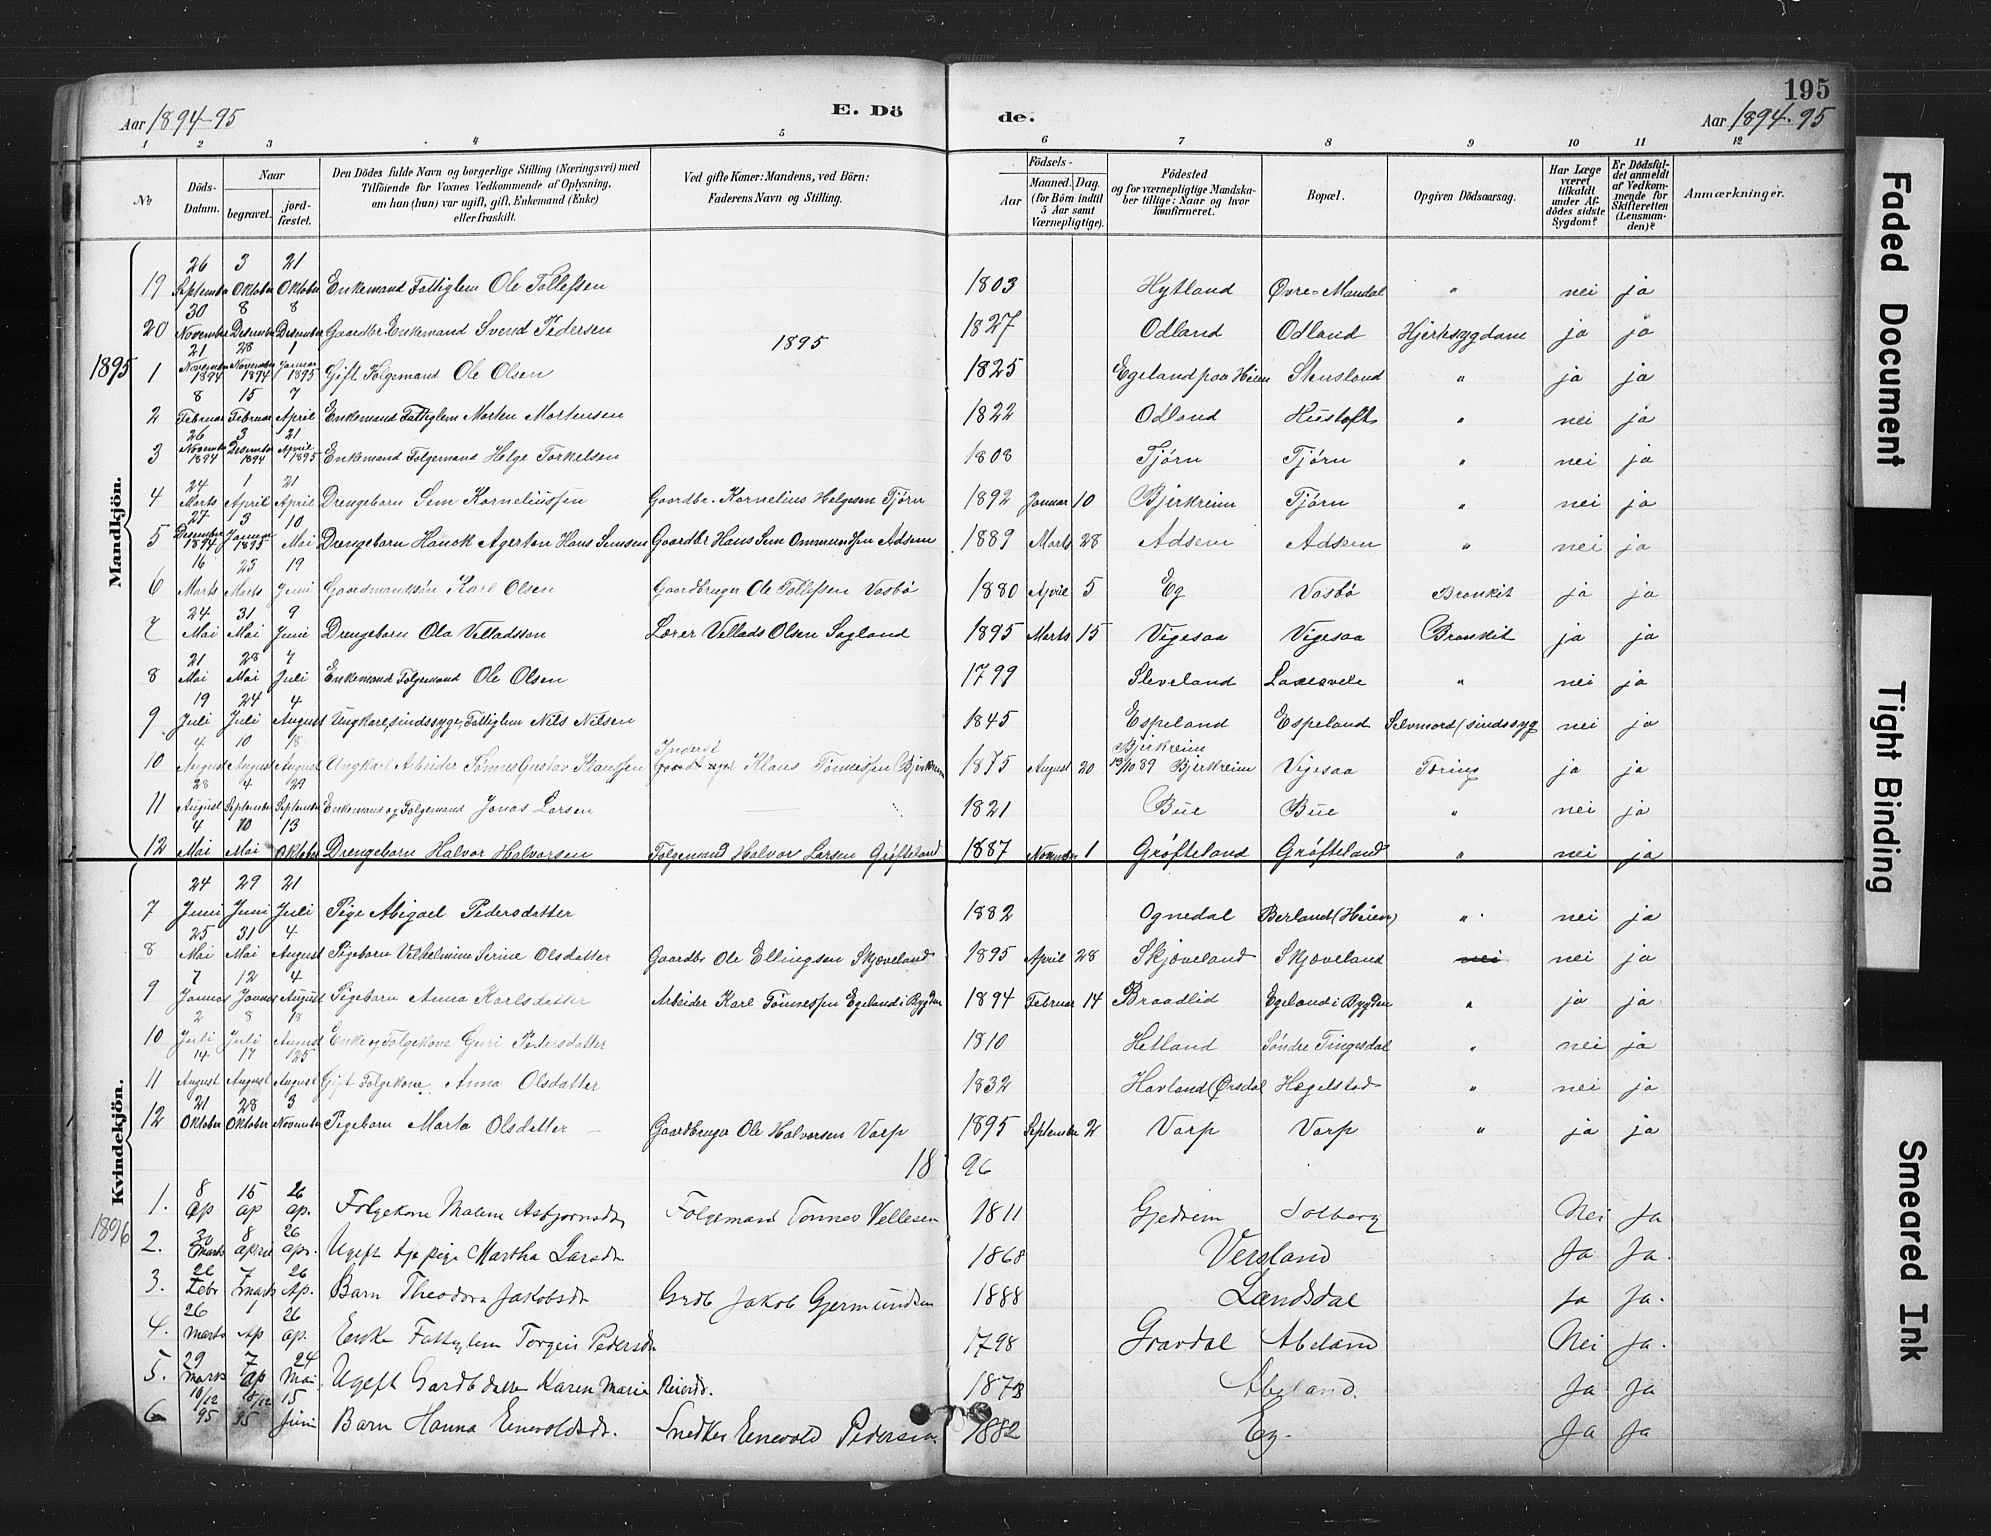 195
Aar 1894-95
E. Dö
de.
Aar 1894-95
1 2 3 4 5 6 7 8 9 10 11 12
No
Döds-Datum.
Naar
begravet.
jord-fæstet.
Den Dödes fulde Navn og borgerlige Stilling (Næringsvei) med
Tilföiende for Voxnes Vedkommende af Oplysning,
om han (hun) var ugift, gift, Enkemand (Enke)
eller fraskilt.
Ved gifte Koner: Mandens, ved Börn:
Faderens Navn og Stilling.
Födsels-
Aar
Maaned. Dag.
(for Börn indtil
5 Aar samt
Værnepligtige).
Födested
og for værnepligtige Mandska-
ber tillige: Naar og hvor
konfirmeret.
Bopæl.
Opgiven Dödsaarsag.
Har Læge
været
tilkaldt
under Af-
dödes sidste
Sygdom?
Er Dödsfal-
det anmeldt
af Vedkom-
mende for
Skifteretten
(Lensman-
den)?
Anmærkninger.
Mandkjön.
19 26 September 3 Oktober 21 Oktober Enkemand Fattiglem Ole Tollefsen 1803 Hytland Øvre=Mandal " nei ja
20 30 November 8 Desember 8 Desember Gaardbr. Enkemand Svend Pedersen 1827 Odland Odland Hjertesygdom ja ja
1895
1895 1 21 November 1894 28 November 1894 1 Januar 1895 Gift Folgemand Ole Olsen 1825 Egeland paa Heien Stensland " ja ja
2 8 Februar 15 Februar 7 April Enkemand Fattiglem Morten Mortensen 1822 Odland Hustoft " nei ja
3 26 November 1894 3 Desember 1894 21 April 1895 Enkemand Folgemand Helge Torkelsen 1808 Tjörn Tjörn " nei ja
4 24 Marts 1 April 21 April Drengebarn Sem Korneliussen Gaardbr. Kornelius Helgesen Tjörn 1892 Januar 10 Bjerkreim Tjörn " nei ja
5 27 Desember 1894 3 Januar 1895 10 Mai Drengebarn Hanok Agerton Hans Semsen Gaardbr Hans Sem Ommundsen Adsem 1889 Marts 28 Adsem Adsem " nei ja
6 16 Marts 23 Marts 19 Juni Gaardmandssön Karl Olsen Gaardbruger Ole Tollefsen Vasbö 1880 April 5 Eg Vasbö Bronkit ja ja
7 24 Mai 31 Mai 9 Juni Drengebarn Ola Velladsson Lærer Vellads Olsen Sagland 1895 Marts 15 Vigesaa Vigesaa Bronkit ja ja
8 21 Mai 28 Mai 7 Juli Enkemand Folgemand Ole Olsen 1799 Sleveland Laxesvele " nei ja
9 19 Juli 24 Juli 4 August Ungkarl, sindssyge, Fattiglem Nils Nilsen 1845 Espeland Espeland Selvmord (sindssyg nei ja
10 4 August 10 August 18 August Ungkarl Arbeider Tönnes Gustav Klausen Inderst Klaus Tönnessen (Bjerkreim 1875 August 20 Bjerkreim 13/10 89 Bjerkreim Vigesaa Tæring ja ja
11 28 August 4 September 29 September Enkemand og Folgemand Jonas Larsen 1821 Bue Bue " nei ja
12 4 Mai 10 Mai 13 Oktober Drengebarn Halvor Halvorsen Folgemand Halvor Larsen Gröfteland 1887 November 1 Gröfteland Gröfteland " nei ja
Kvindekjön.
7 24 Juni 29 Juni 21 Juli Pige Abigael Pedersdatter 1882 Ognedal Berland (Heien) " nei ja
8 25 Mai 31 Mai 4 August Pigebarn Vilhelmine Serine Olsdatter Gaardbr Ole Ellingsen Skjæveland 1895 April 28 Skjæveland Skjæveland nei nei ja
9 7 Januar 12 Januar 4 August Pigebarn Anna Karlsdatter Arbeider Karl Tönnessen Egeland i Bygden 1894 Februar 14 Braadlid Egeland i Bygden " ja ja
10 2 Juli 8 Juli 18 August Enke og Folgekone Guri Pedersdatter 1810 Hetland Söndre Tingesdal " nei ja
11 14 August 17 August 25 August Gift Folgekone Anna Olsdatter 1832 Havland (Ørsdal Hegelstad " nei ja
12 21 Oktober 28 Oktober 3 November Pigebarn Marta Olsdatter Gaardbruger Ole Halvorsen Varp 1895 September 2 Varp Varp " ja ja
18 96
1896
1. 8 Ap 15 Ap 26 Ap. Folgekone Malene Asbjørnsdt Folgemand Tonnes Vellesen 1811 Gjedrem Solberg Nei Ja
2. 30 Marts 8 April 26 Apr. Ugift tje pige Martha Larsdt 1868 Versland Ja Ja.
3. 26 Febr 7 Marts 26 Ap. Barn Theodora Jakobsdt Grdb Jakob Gjermundsen 1888 Landsdal Ja Ja.
4. 26 Marts 1 Ap 26 Ap. Enke Fattiglem Torgen Pedersdt 1798 Gravdal Abeland Nei Ja.
5. 29 Marts 7 Ap 24 Mai Ugift Gardb datter Karen Marie Reiersdt. 1873 Abeland. Ja Ja
6 10/12 95 18/12 95 15 Juni Barn Hanna Enevoldsdt. Snedker Enevold Pedersen 1882 Eg. Ja Ja
Faded Document
Tight Binding
Smeared Ink